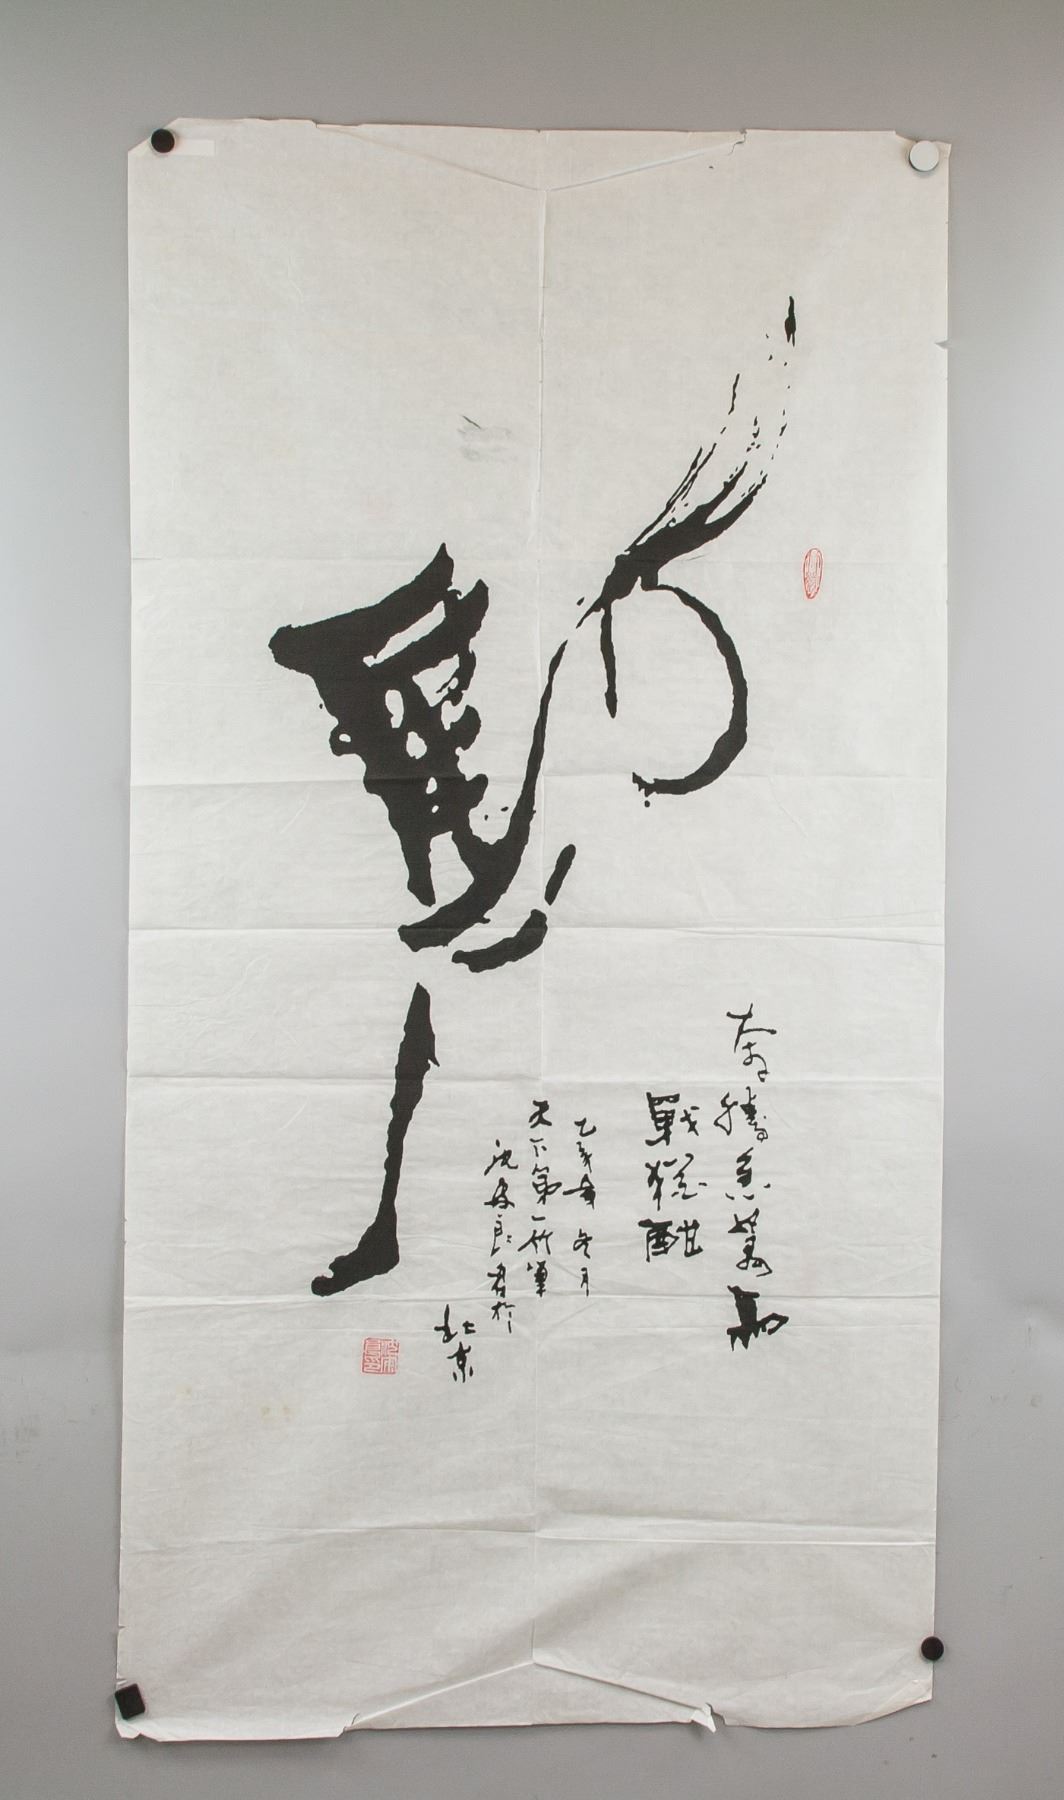 馬
奔騰急萬馬
戰猶酣
乙亥年冬月
天下第一竹筆
沈良書於
北京